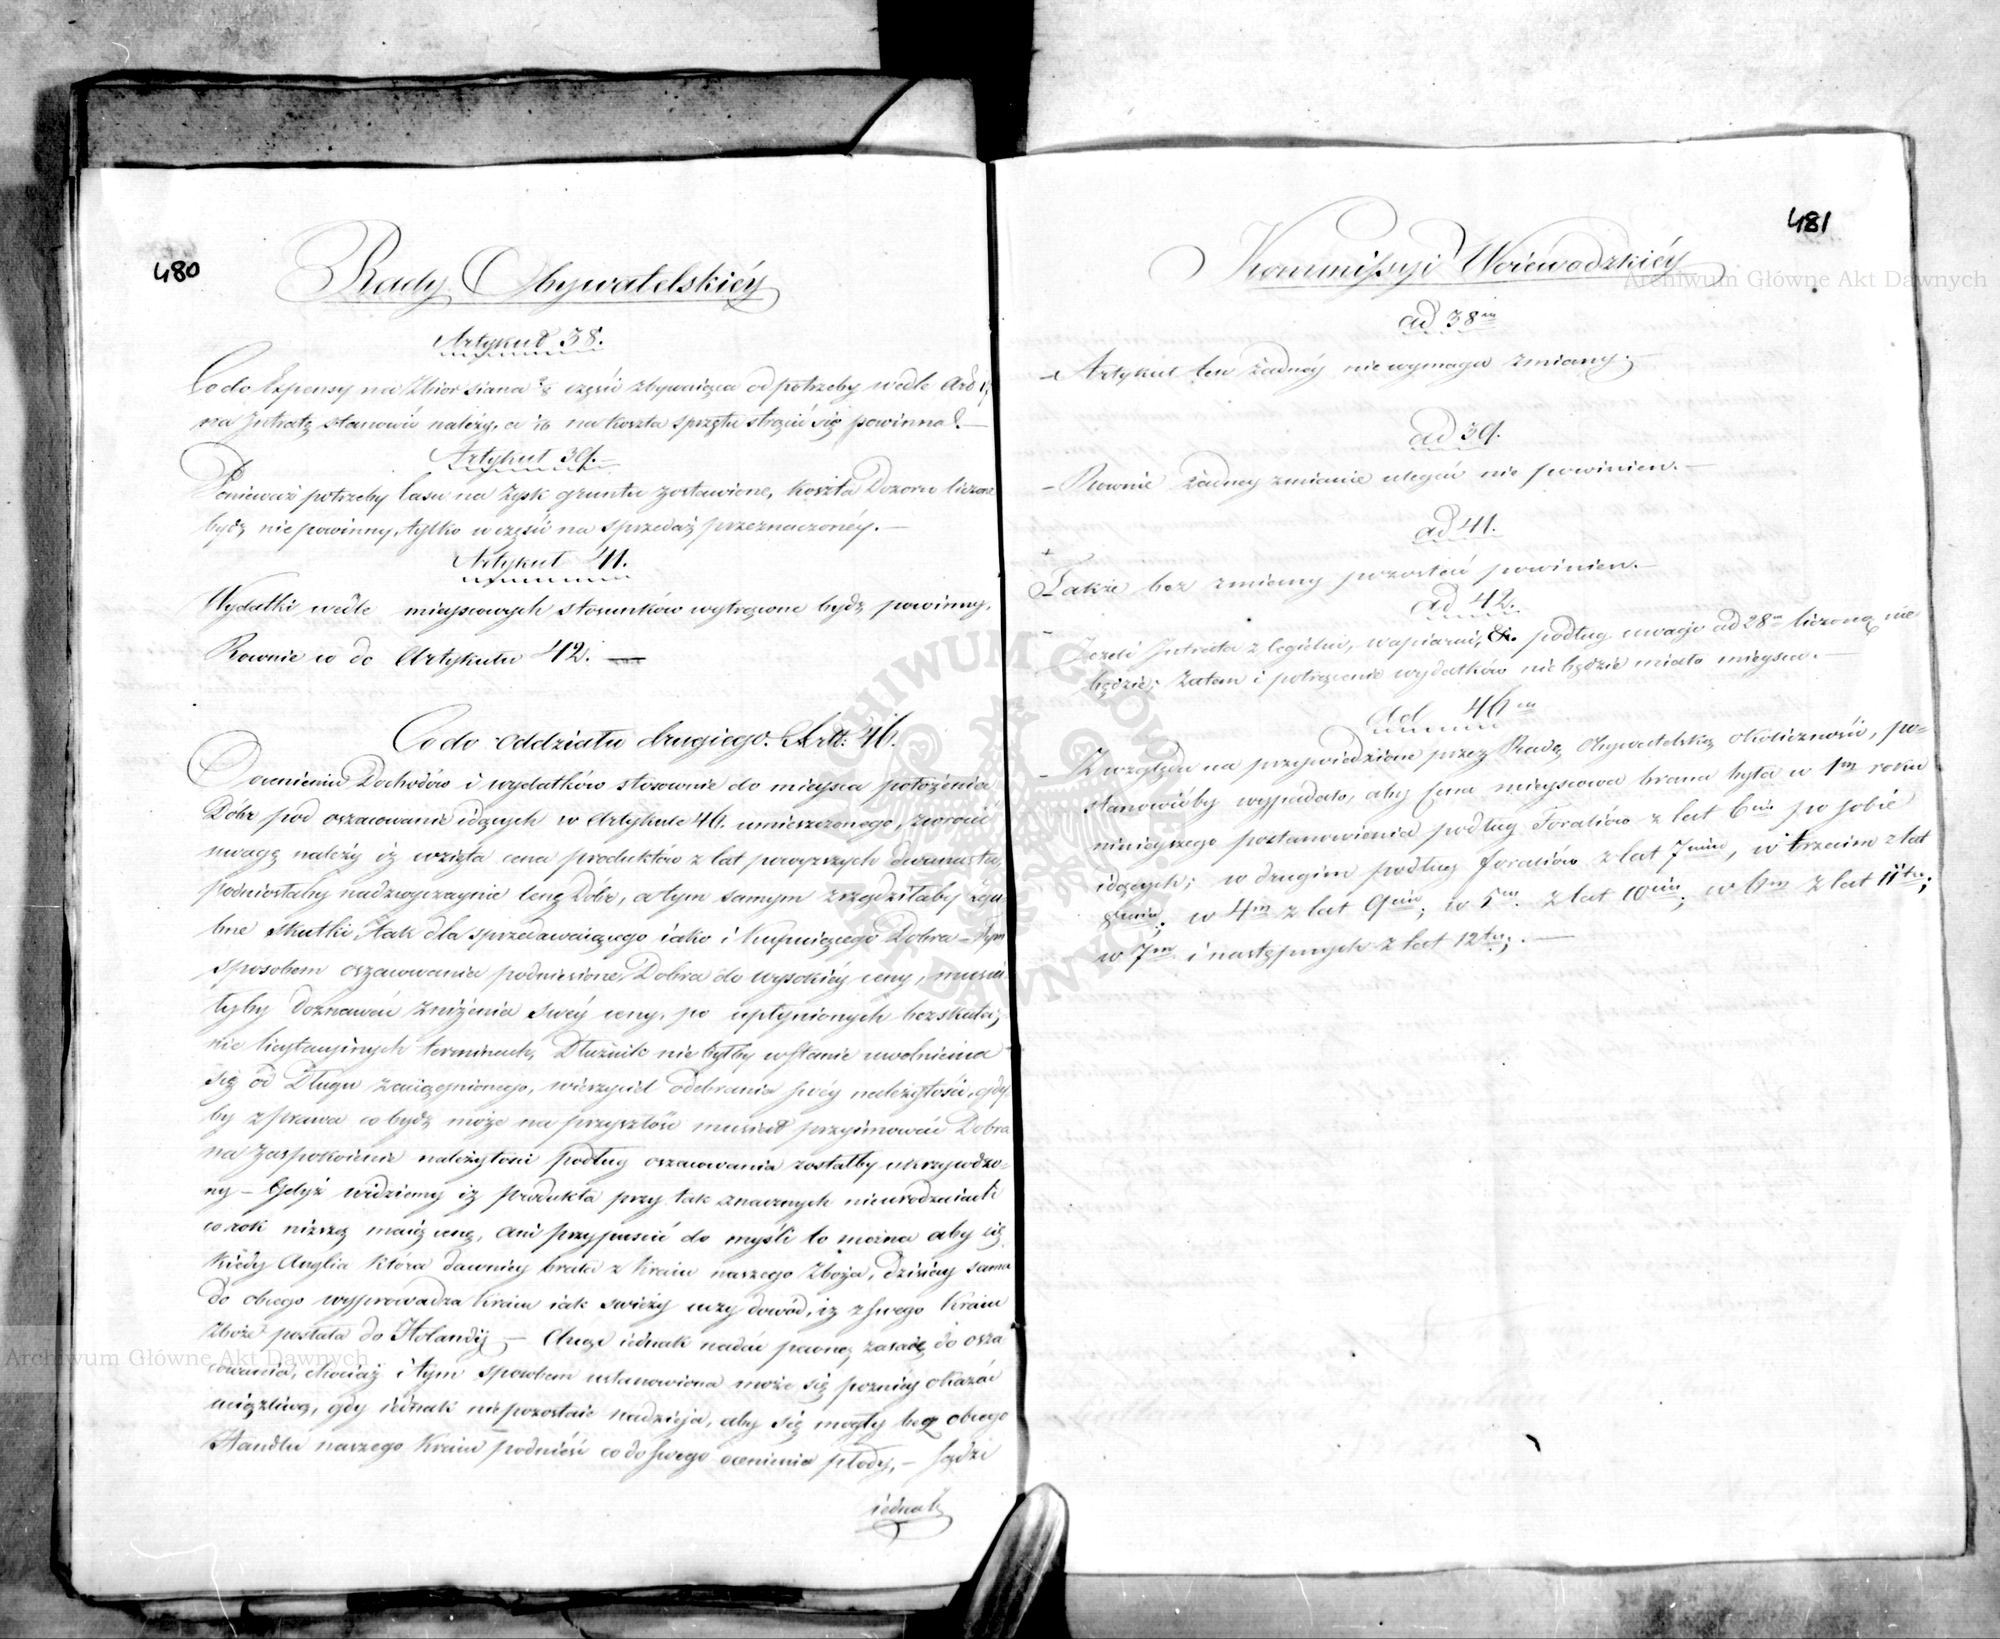 480
Rady Obywatelskiéy
Artykuł 38.
Co do Expensy na Zbior siana części zbywaiąca od potrzeby wedle Ard
na Intratę stanowić należy, a 1/10 na koszta sprzętu strącić się powinna.—
Artykuł 39.—
Ponieważ potrzeby lasu na Zysk gruntu zostawione, koszta Dozoru liczone
bydź nie powinny, tylko w części na sprzedaż przeznaczonéy.—
Artykuł 41.
Wydatki wedle mieyscowych stosunków wytrącone bydź powinny,
Rownie co do Artykułu 42.—
Co do oddziału drugiego. Artt: 46.
Ocenieniu Dochodów i wydatków stosownie do mieysca położenia
Dóbr pod oszacowanie idących w Artykule 46. umieszczonego, zwrócić
uwagę należy iż wzięta cena produktów z lat powyższych dwunastu,
podniosłaby nadzwyczaynie cenę Dóbr, a tym samym zrządziłaby zgu
bne skutki, tak dla sprzedawaiącego iako i kupuiącego Dobra – tym
sposobem oszacowania podniesione, Dobra do wysokiéy ceny, musia
łyby doznawać zniżenia swéy ceny, po upłynionych bezskute;
nie licytacyinych terminach, Dłużnik nie byłby w stanie uwolnienia
się od Długu zaciągnionego, wierzyciel odebrania swéy należytości, gdy
by z prawa co bydź może na przyszłość musiał przyimować Dobra
na zaspokoienie należytości podług oszacowania zostałby ukrzywdzo-
ny – Gdyż widziemy iż produkta przy tak znacznych nieurodzaiach
co rok niższą maią cenę, ani przypuścić do myśli to można aby się
kiedy Anglia która dawniey brała z Kraiu naszego Zboża, dzisiay sama
do obcego wyprowadza Kraiu iak świeży uczy dowód, iż z swego Kraiu
Zboże posłała do Holandij – Chcąc iednak nadać pewną zasadę do osza
cowania, chociaż i tym sposobem ustanowiona może się pozniey okazać
uciążliwą, gdy iednak nie pozostaie nadzieja, aby się mogły bez obcego
Handlu naszego Kraiu podnieść co do swego ocenienia płody,— sądzi
iednak
481
Kommissyi Woiewodzkiéy
ad 38m
– Artykuł ten żadnéy nie wymaga zmiany.—
ad 39.
– Rownie żadney zmianie ulegać nie powinien.—
ad 41.
+
Także bez zmiany pozostać powinien.—
ad 42.
– Jeżeli Intrata z cegielni, wapiarni, &c. podług uwagi ad 28m liczoną nie
będzie; zatem i potrącenie wydatków nie będzie miało mieysca.—
ad 46m
– Z względu na przywiedzione przez Radę Obywatelską okoliczności, po-
stanowićby wypadało, aby cena mieyscowa brana była w 1m roku
ninieyszego postanowienia podług Foraliów z lat 6ciu po sobie
idących; w drugim podług foraliów z lat 7miu, w trzecim z lat
8miu, w 4m z lat 9ciu; w 5m z lat 10ciu; w 6m z lat 11tu;
w 7m i następnych z lat 12tu;.—
Archiwum Główne Akt Dawnych
Archiwum Główne Akt Dawnych
ARCHIWUM GŁÓWNE AKT DAWNYCH